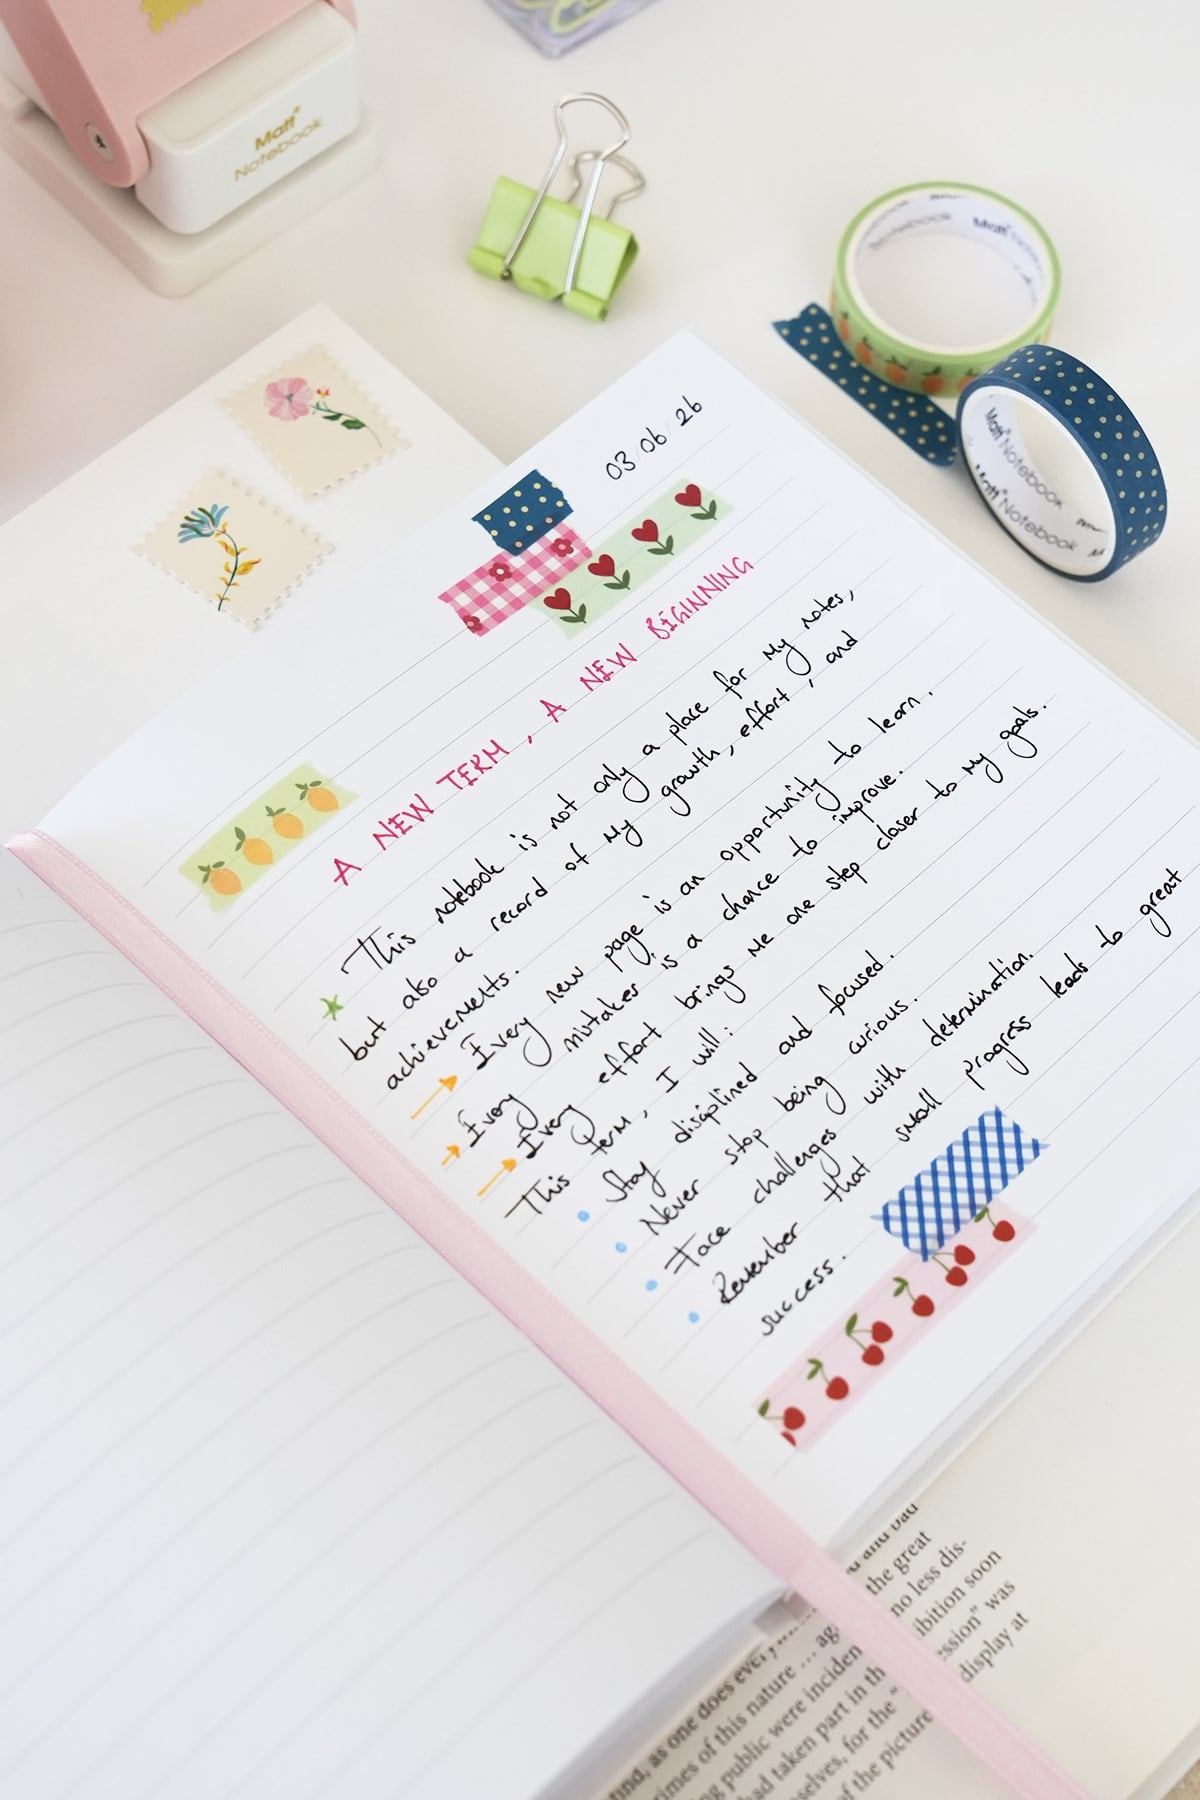 Matt
Notebook
Notebook
Matt
Matt Notebook
Matt Notebook
03/06/26
A NEW TERM, A NEW BEGINNING
This notebook is not only a place for my notes,
but also a record of my growth, effort, and
achievements.
→ Every new page is an opportunity to learn.
→ Every mistake is a chance to improve.
→ Every effort brings me one step closer to my goals.
This term, I will:
• Stay disciplined and focused.
• Never stop being curious.
• Face challenges with determination.
• Remember that small progress leads to great
success.
and bad
the great
no less dis-
ibition soon
ession” was
display at
as one does every
times of this nature ... ag
public were inciden
had taken part in th
selves, for the “
of the picture